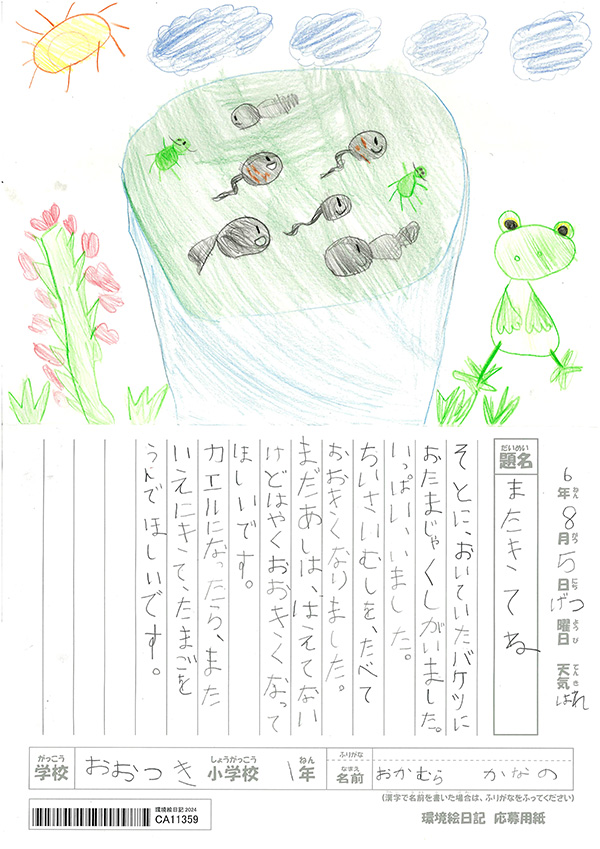 6年8月5日げつ曜日 天気はれ
ねん がつ にち ようび てんき
だいめい
題名 またきてね
そとに、おいていたバケツに
おたまじゃくしがいました。
いっぱい、いました。
ちいさいむしを、たべて
おおきくなりました。
まだあしは、はえてない
けどはやくおおきくなって
ほしいです。
カエルになったら、また
いえにきて、たまごを
うんでほしいです。
がっこう しょうがっこう ねん なまえ ふりがな
学校 おおつき 小学校 1年 名前 おかむら かなの
(漢字で名前を書いた場合は、ふりがなをふってください)
環境絵日記 2024
CA11359
環境絵日記 応募用紙